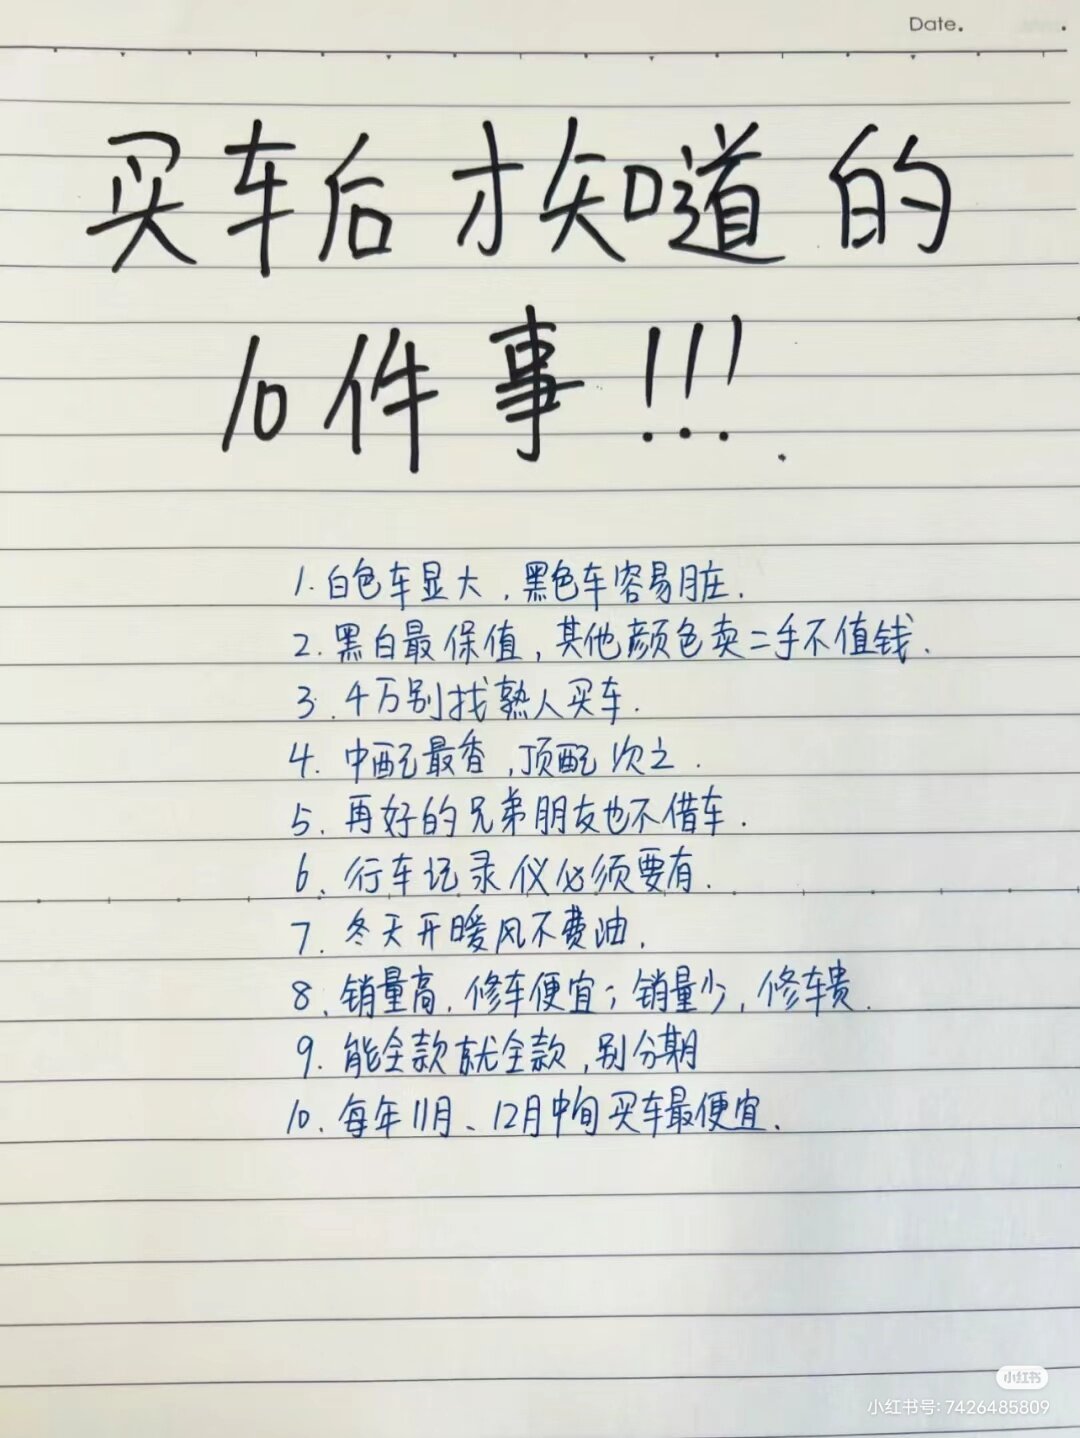 Date.
买车后才知道的
10件事!!!
1.白色车显大,黑色车容易脏.
2.黑白最保值,其他颜色卖二手不值钱.
3.千万别找熟人买车.
4.中配最香,顶配次之.
5.再好的兄弟朋友也不借车.
6.行车记录仪必须要有.
7.冬天开暖风不费油.
8.销量高,修车便宜;销量少,修车贵.
9.能全款就全款,别分期
10.每年11月、12月中旬买车最便宜.
小红书
小红书号: 7426485809